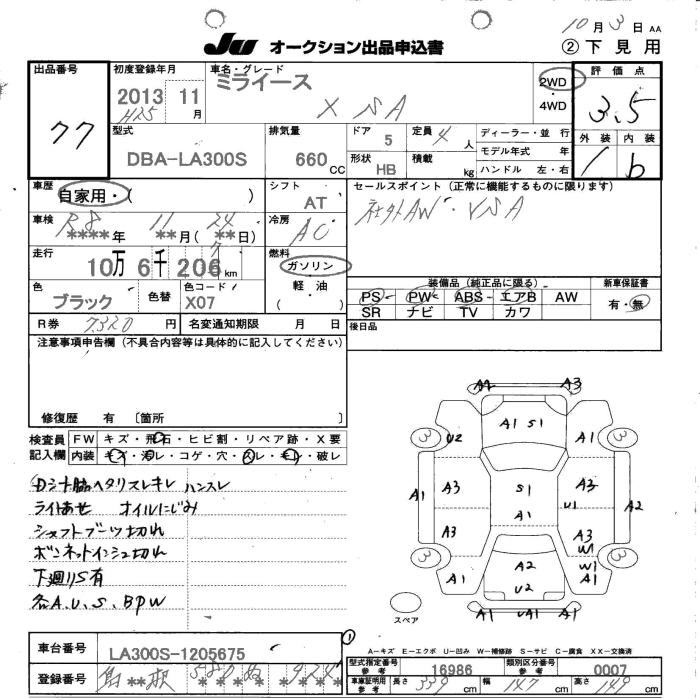 10月3日 AA
JU オークション出品申込書 ②下見用
出品番号 77
初度登録年月 2013 11月 H25
車名・グレード ミライース X SA
2WD・4WD
評価点 3.5
外装 内装
型式 DBA-LA300S
排気量 660CC
ドア 5
定員 4人
形状 HB
積載 kg
ディーラー・並行
モデル年式 年
ハンドル 左・右
車歴 自家用・( )
シフト AT
セールスポイント(正常に機能するものに限ります)
社外AW・VSA
車検 R8 11 24
****年 **月(**日)
冷房 AC
走行 10万6千206km
燃料 ガソリン・軽油・( )
色 ブラック 色替 色コード X07
装備品(純正品に限る) 新車保証書
PS PW ABS エアB AW 有・無
SR ナビ TV カワ
R券 7320円 名変通知期限 月 日
後日品
注意事項申告欄(不具合内容等は具体的に記入してください)
修復歴 有 〔箇所 〕
検査員記入欄 FW キズ・飛石・ヒビ割・リペア跡・X要
内装 キズ・汚レ・コゲ・穴・スレ・モレ・破レ
ハンスレ
ライトあせ オイルにじみ
シャフトブーツ切れ
ボンネットインシュ切れ
下廻りS有
各A.U.S.BPW
A3
A1 S1
3 U2 A1 3
A1 A3 S1 A3 A2
A1 U1
A3 A3
W1
3 A1 A2 W1 A1 3
U2
U1 A1
スペア
A-キズ E-エクボ U-凹み W-補修跡 S-サビ C-腐食 XX-交換済
車台番号 LA300S-1205675
型式指定番号 参考 16986 類別区分番号 参考 0007
登録番号
車庫証明用 参考 長さ 339cm 幅 147cm 高さ 149cm